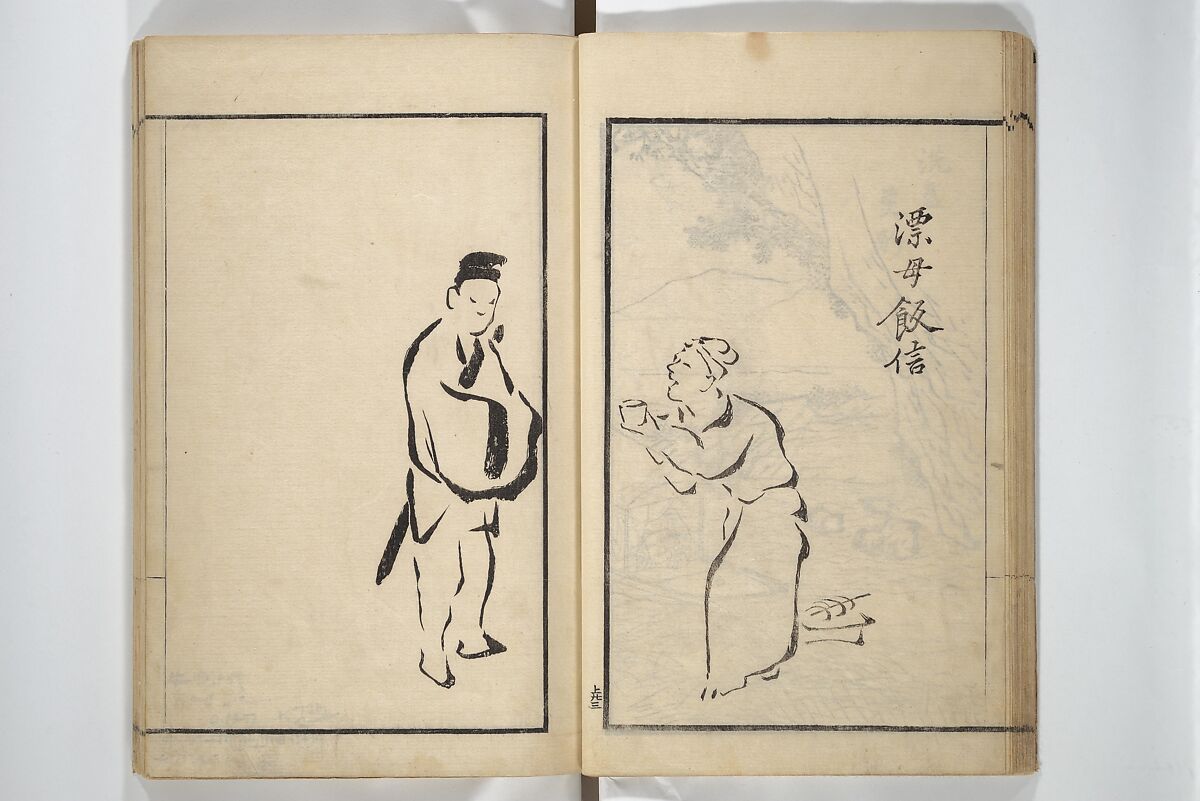 漂母飯信
上 三